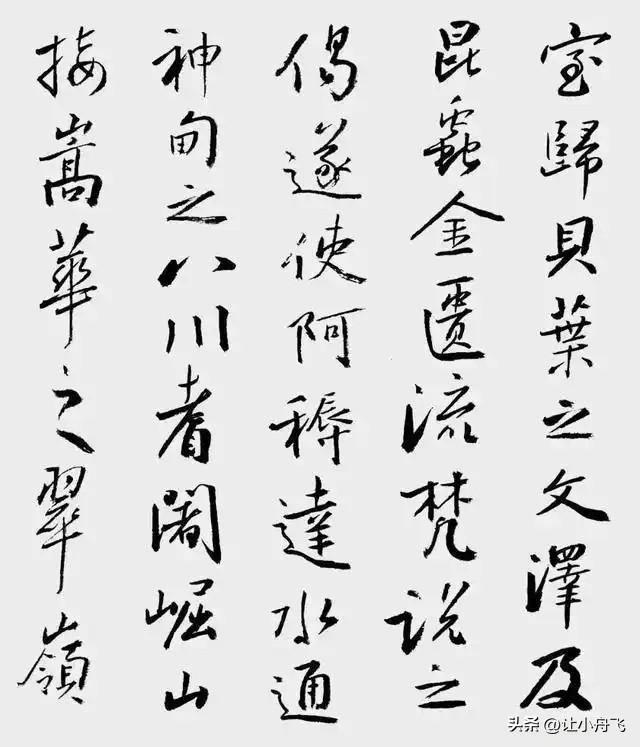 室歸貝葉之文澤及
昆蟲金匱流梵説之
偈遂使阿耨達水通
神甸之八川耆闍崛山
接嵩華之翠嶺
头条 @让小舟飞